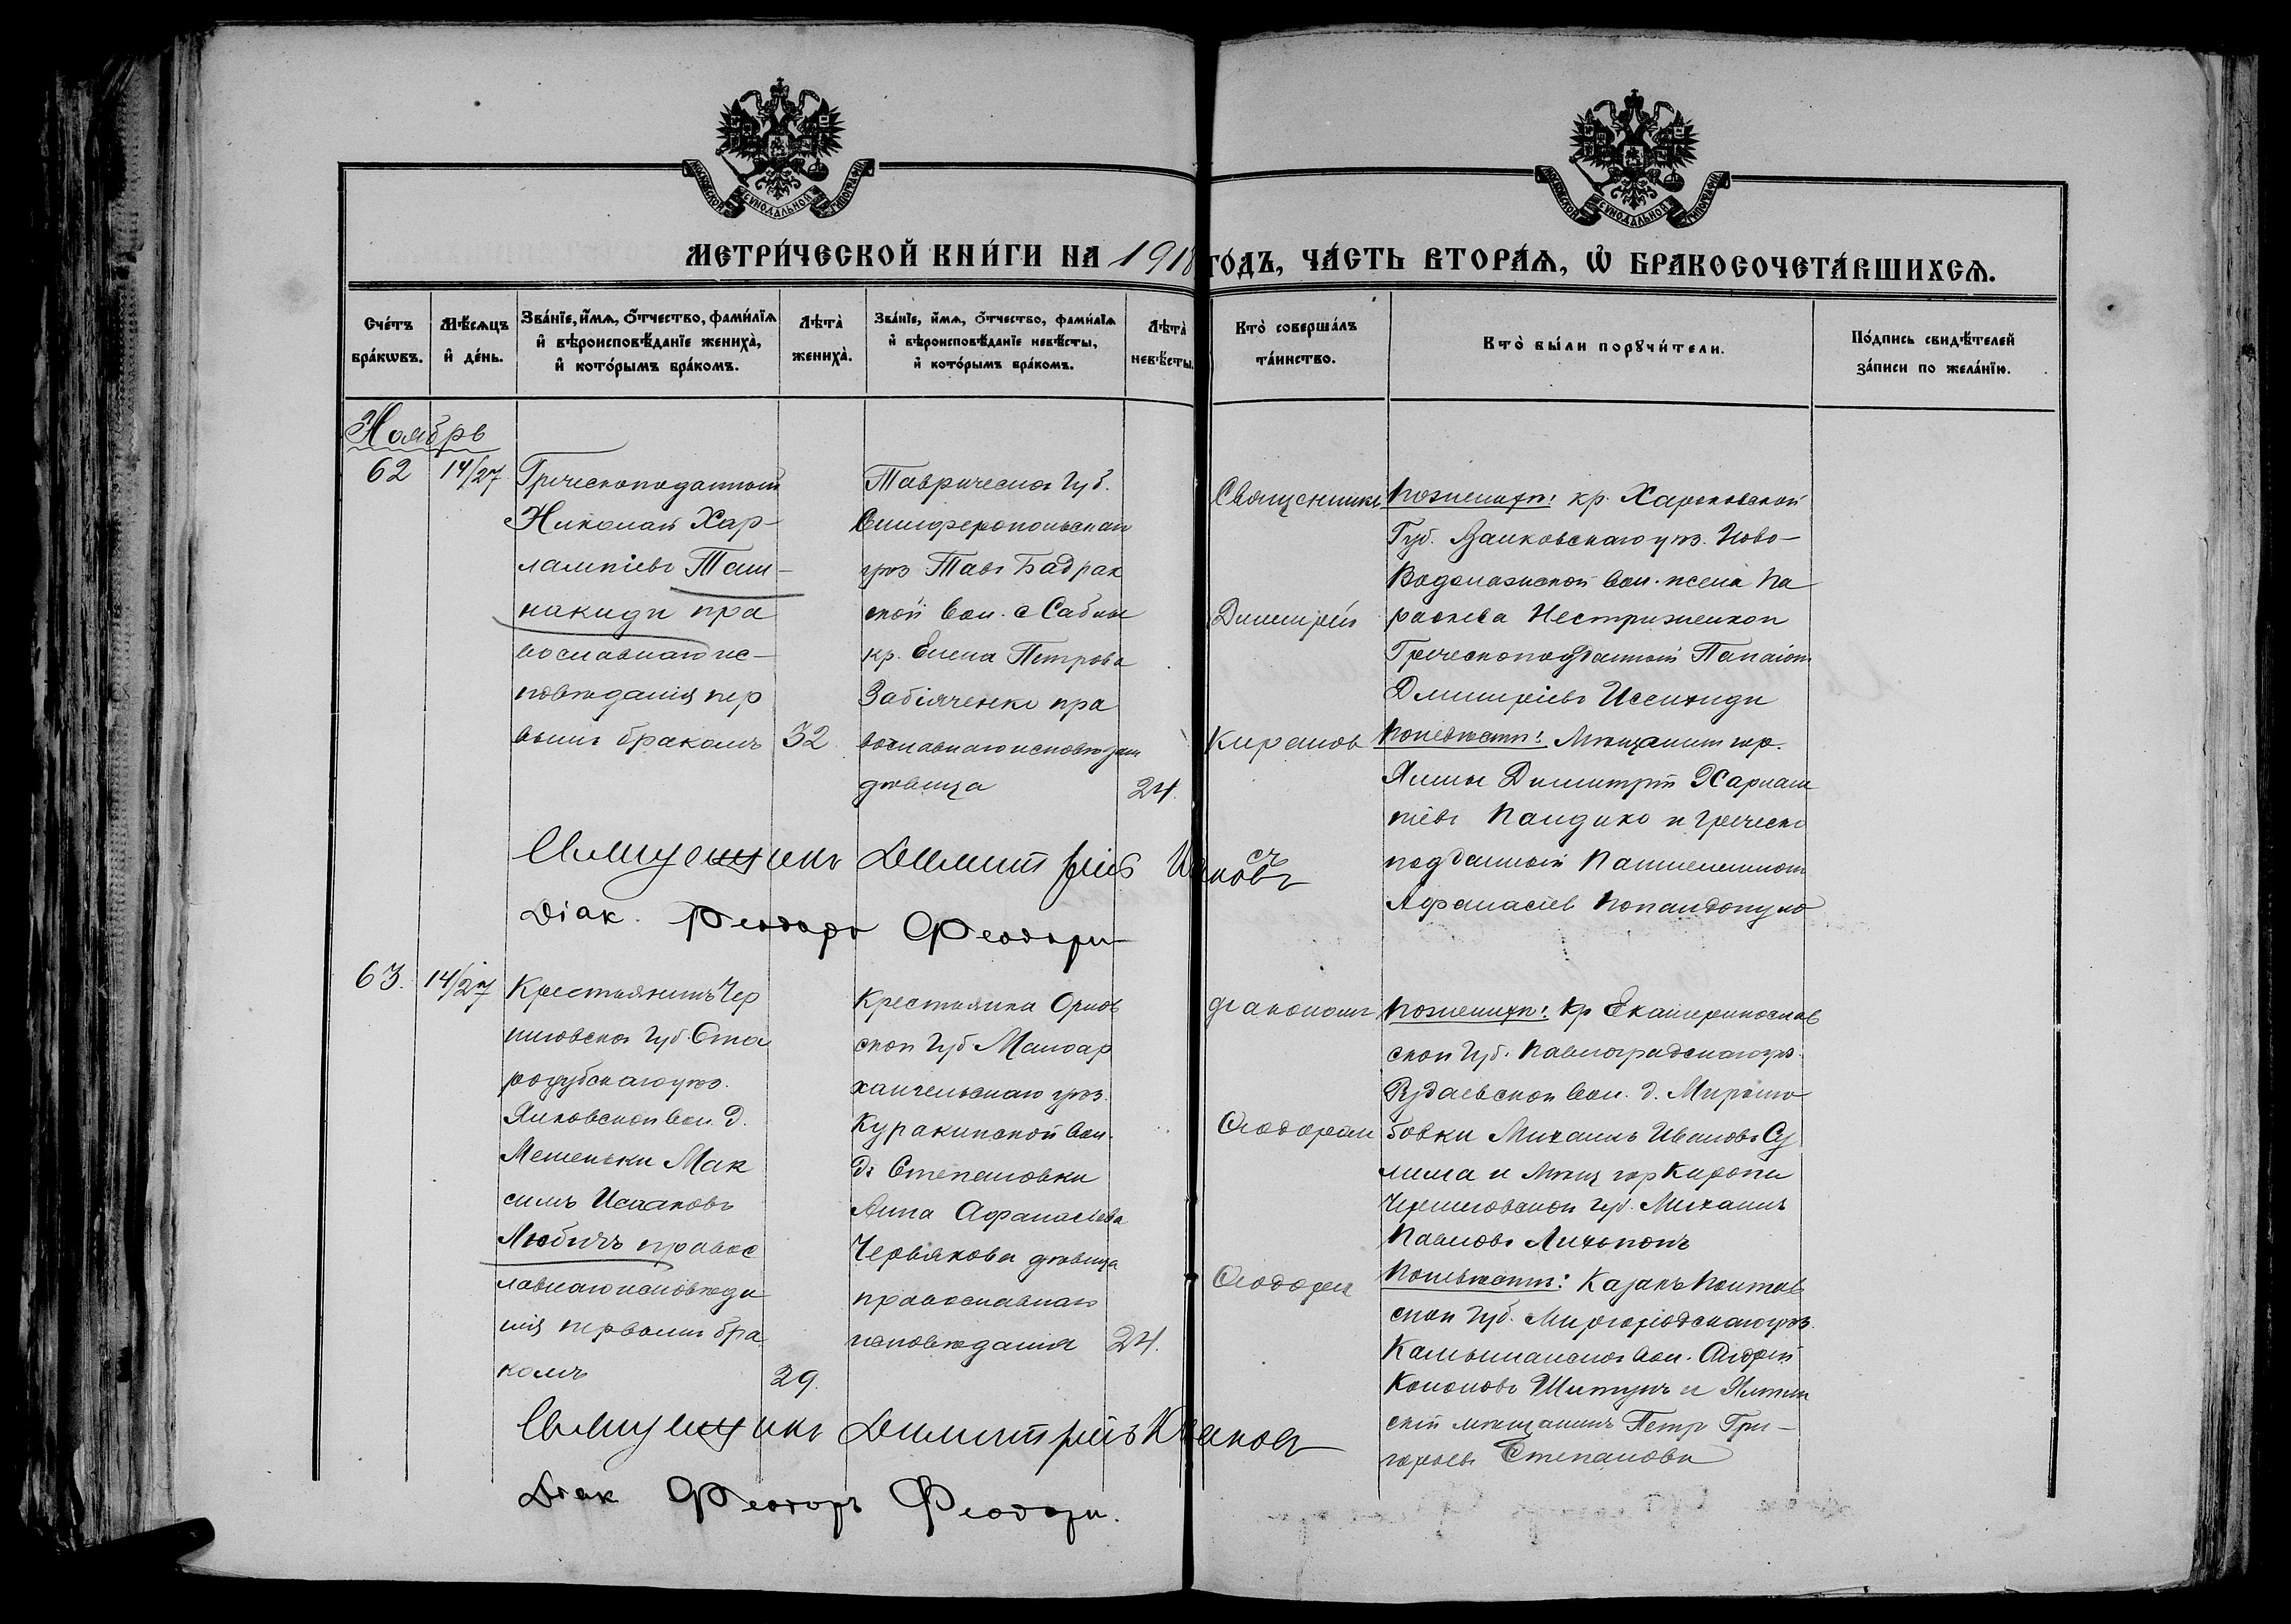 МОСКОВСКОЙ СѴНОДАЛЬНОЙ ТИПОГРАФІИ
МОСКОВСКОЙ СѴНОДАЛЬНОЙ ТИПОГРАФІИ
МЕТРИ́ЧЕСКОЙ КНИ́ГИ НА 1918 ГО́ДЪ, ЧА́СТЬ ВТОРА́Ѧ, Ѡ҆ БРАКОСОЧЕТА́ВШИХСѦ.
Сче́тъ бра́кωвъ.
Мѣ́сѧцъ и҆ де́нь.
Зва́нїе, и҆́мѧ, ѻ҆́тчество, фами́лїѧ
и҆ вѣроисповѣ́данїе жениха̀,
и҆ кото́рымъ бра́комъ.
Лѣта̀ жениха̀.
Зва́нїе, и҆́мѧ, ѻ҆́тчество, фами́лїѧ
и҆ вѣроисповѣ́данїе невѣ́сты,
и҆ кото́рымъ бра́комъ.
Лѣта̀ невѣ́сты.
Кто̀ соверша́лъ та́инство.
Кто̀ бы́ли порꙋчи́тели.
По́дпись свидѣ́телей за́писи по жела́нїю.
Ноябрь
62
14/27
Греческоподанный
Николай Хар-
лампіевъ Таш-
накиди пра
вославнаго ис-
повѣданія пер
вымъ бракомъ
32
Таврической Губ.
Симферопольскаго
уѣз. Тавъ Бадрак
ской Вол. с Сабли
кр. Елена Петрова
Забіяченко пра
вославнаго исповѣдан
дѣвица
24.
Священникъ
Димитрій
Кирановъ
По женихѣ: кр. Харьковской
Губ. Валковскаго уѣз. Ново-
Водолажской Вол. жена Па
раскева Нестриженкоп
Греческоподданный Панаіот
Дмитріевъ Иссихиди
По невѣстѣ: Мѣщанин гор.
Ялты Димитрій Харлам
піевъ Пандико и греческо
подданный
Афанасіев Попандопуло
Священникъ Димитрій Кирановъ
Діак. Феодоръ Феодори
63.
14/27
Крестьянинъ Чер
ниговской Губ. Ста
родубскаго уѣз.
Вол. д.
Меленьки Мак
симъ Исааковъ
Любичъ правос
лавнаго исповѣда
нія первымъ бра
комъ
29.
Крестьянка Орлов
ской Губ Малоар
хангельскаго уѣз.
Куракинской Вол.
дъ Степановки
Анна Афанасіева
Червякова дѣвица
православнаго
исповѣданія
24.
діаконом
Феодором
Феодори
По женихѣ: Кр Екатеринослав
ской Губ. Павлоградскаго уѣз.
Вол. д. Мирошо
бовки Михаилъ Ивановъ Су
лима и Мѣщ гор Киропи
Черниговской губ. Михаилъ
Павловъ Лихопопъ
По невѣстѣ: Казакъ Полтав
ской Губ. Миргородскаго уѣз.
Вол. Андрей
Кононовъ Шитунъ и Ялтин
скій мѣщанинъ Петр Гри-
горьевъ Степановъ
Священникъ Димитрій Кирановъ
Діак Феодоръ Феодори.